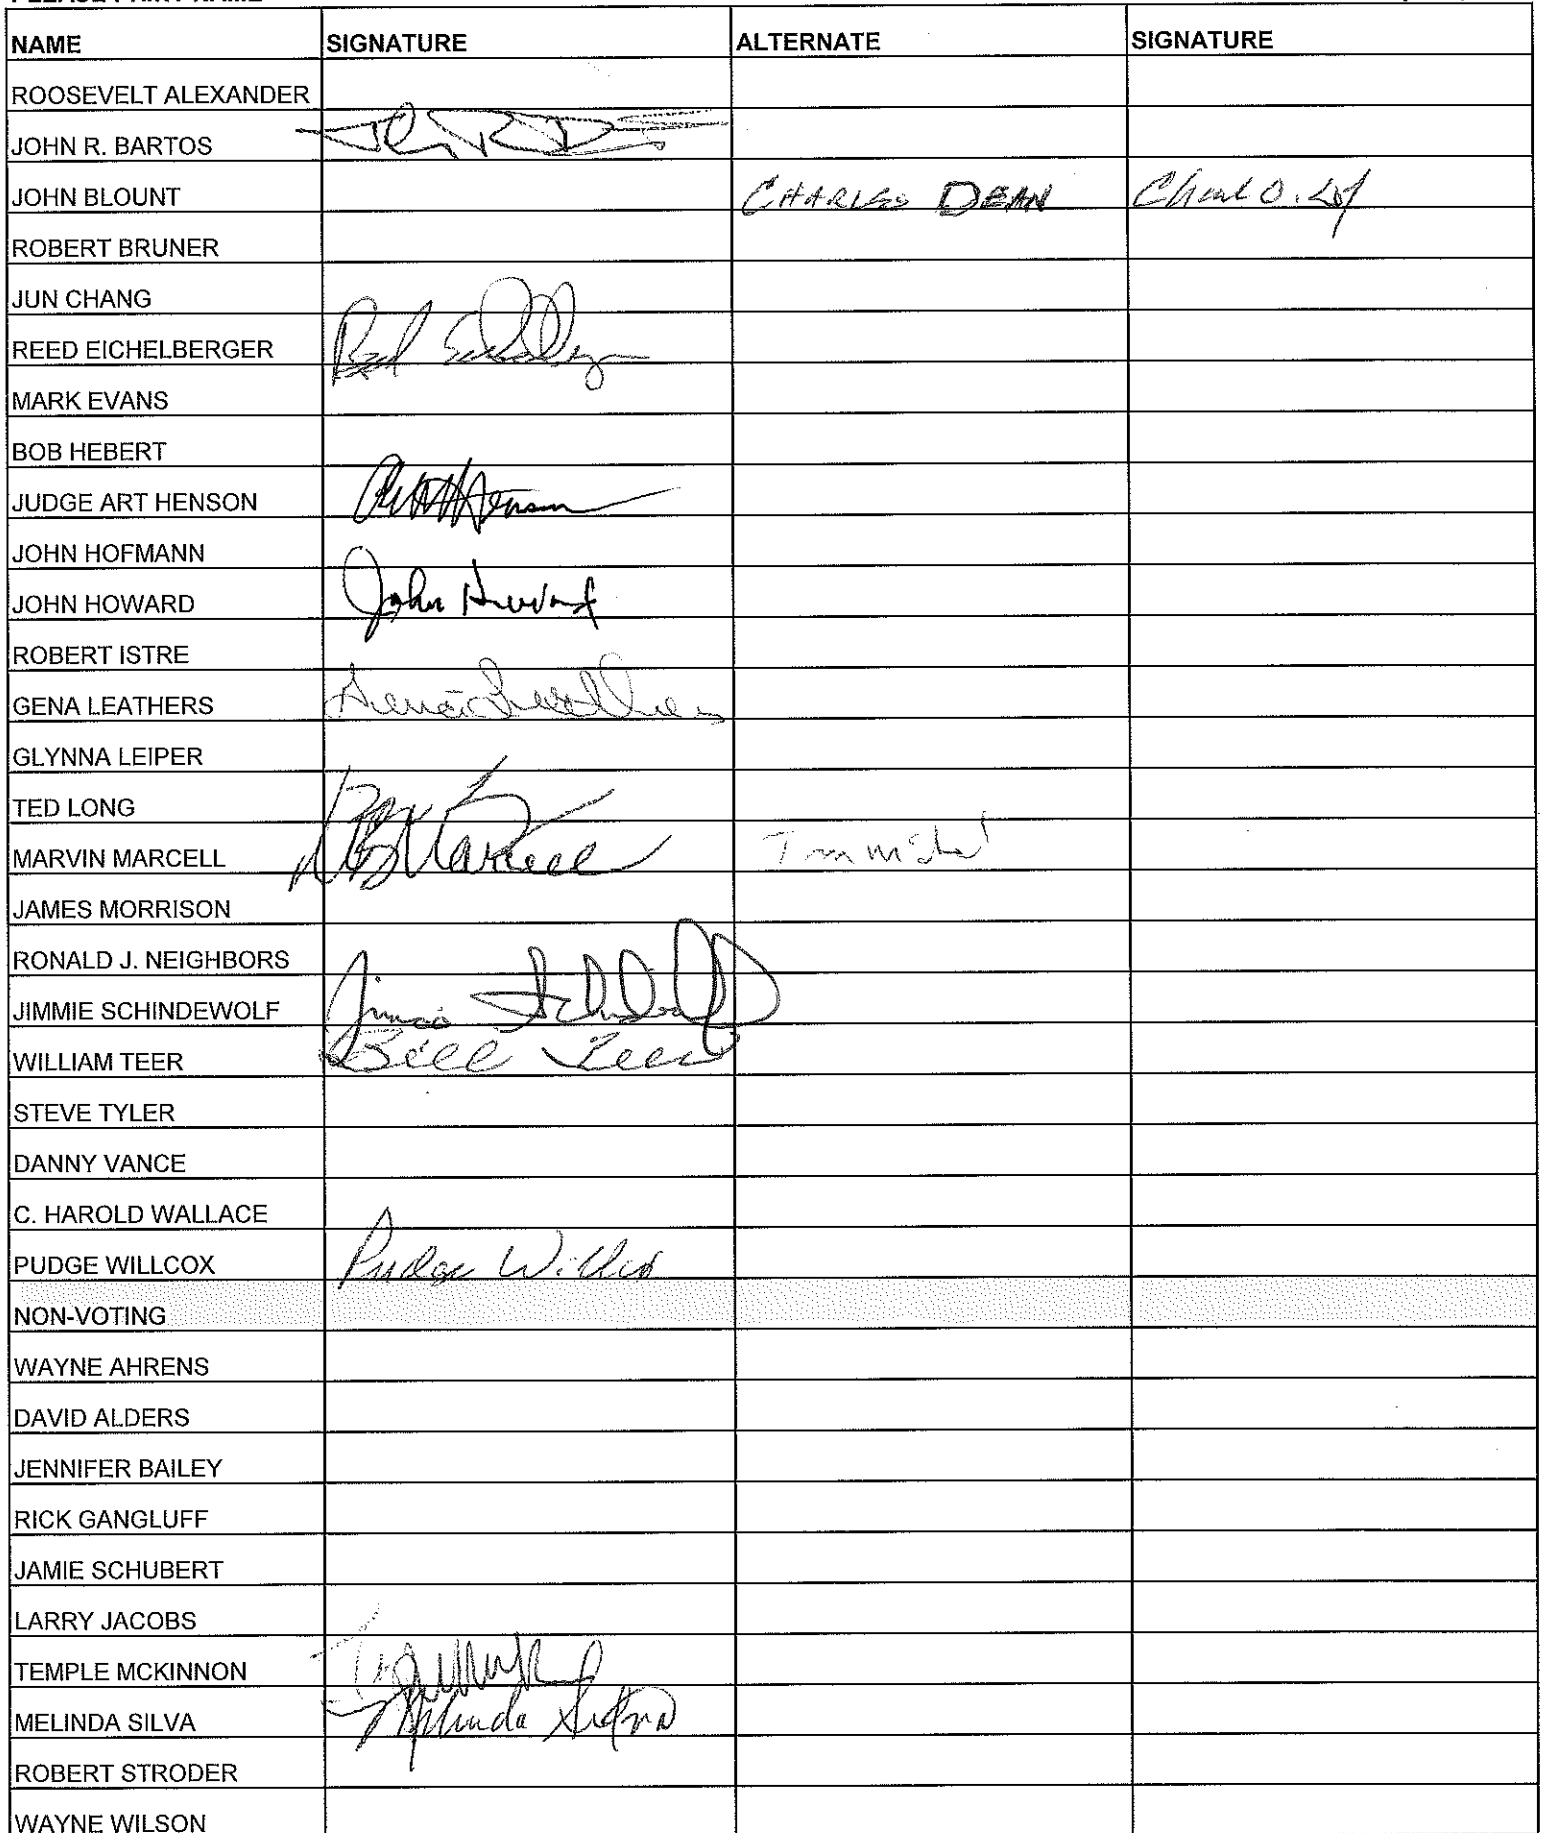 NAME SIGNATURE ALTERNATE SIGNATURE
ROOSEVELT ALEXANDER
JOHN R. BARTOS
JOHN BLOUNT CHARLES DEAN
ROBERT BRUNER
JUN CHANG
REED EICHELBERGER Reed
MARK EVANS
BOB HEBERT
JUDGE ART HENSON Art Henson
JOHN HOFMANN
JOHN HOWARD John Howard
ROBERT ISTRE
GENA LEATHERS Gena Leathers
GLYNNA LEIPER
TED LONG
MARVIN MARCELL Marcell
JAMES MORRISON
RONALD J. NEIGHBORS
JIMMIE SCHINDEWOLF Jimmie Schindewolf
WILLIAM TEER Bill Teer
STEVE TYLER
DANNY VANCE
C. HAROLD WALLACE
PUDGE WILLCOX Pudge Willcox
NON-VOTING
WAYNE AHRENS
DAVID ALDERS
JENNIFER BAILEY
RICK GANGLUFF
JAMIE SCHUBERT
LARRY JACOBS
TEMPLE MCKINNON
MELINDA SILVA Melinda Silva
ROBERT STRODER
WAYNE WILSON